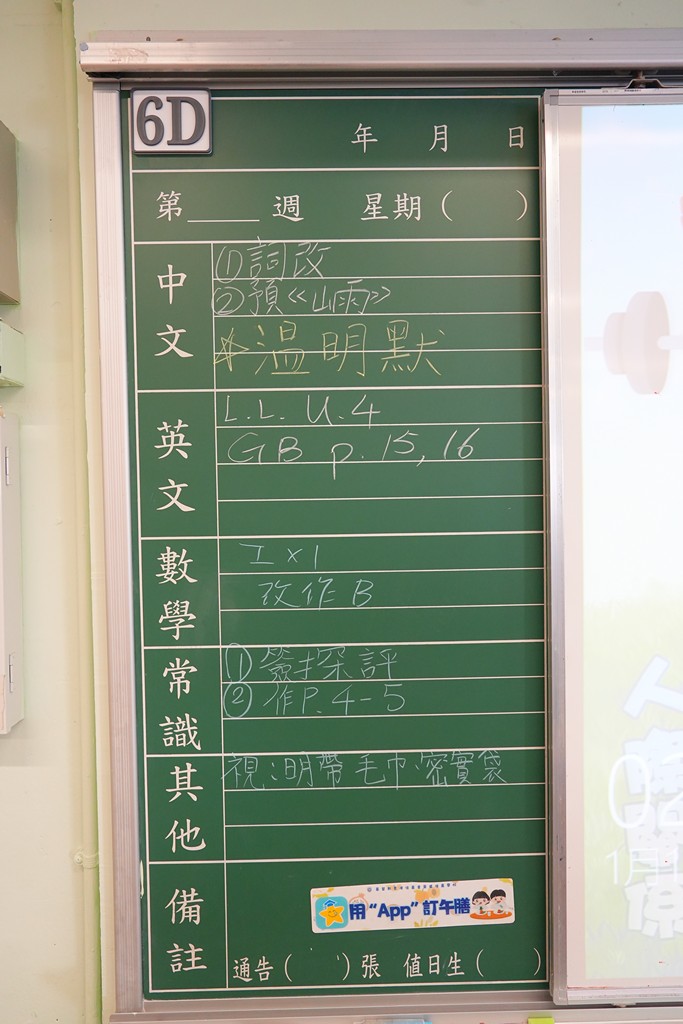 6D
年 月 日
第____週 星期( )
中文
①詞改
②預《山雨》
*溫明默
英文
L.L. U.4
GB p.15,16
數學
工x1
改作B
常識
①簽探評
②作P.4-5
其他
視:明帶毛巾、密實袋
備註
用“App”訂午膳
通告( )張 值日生( )
02
1月1